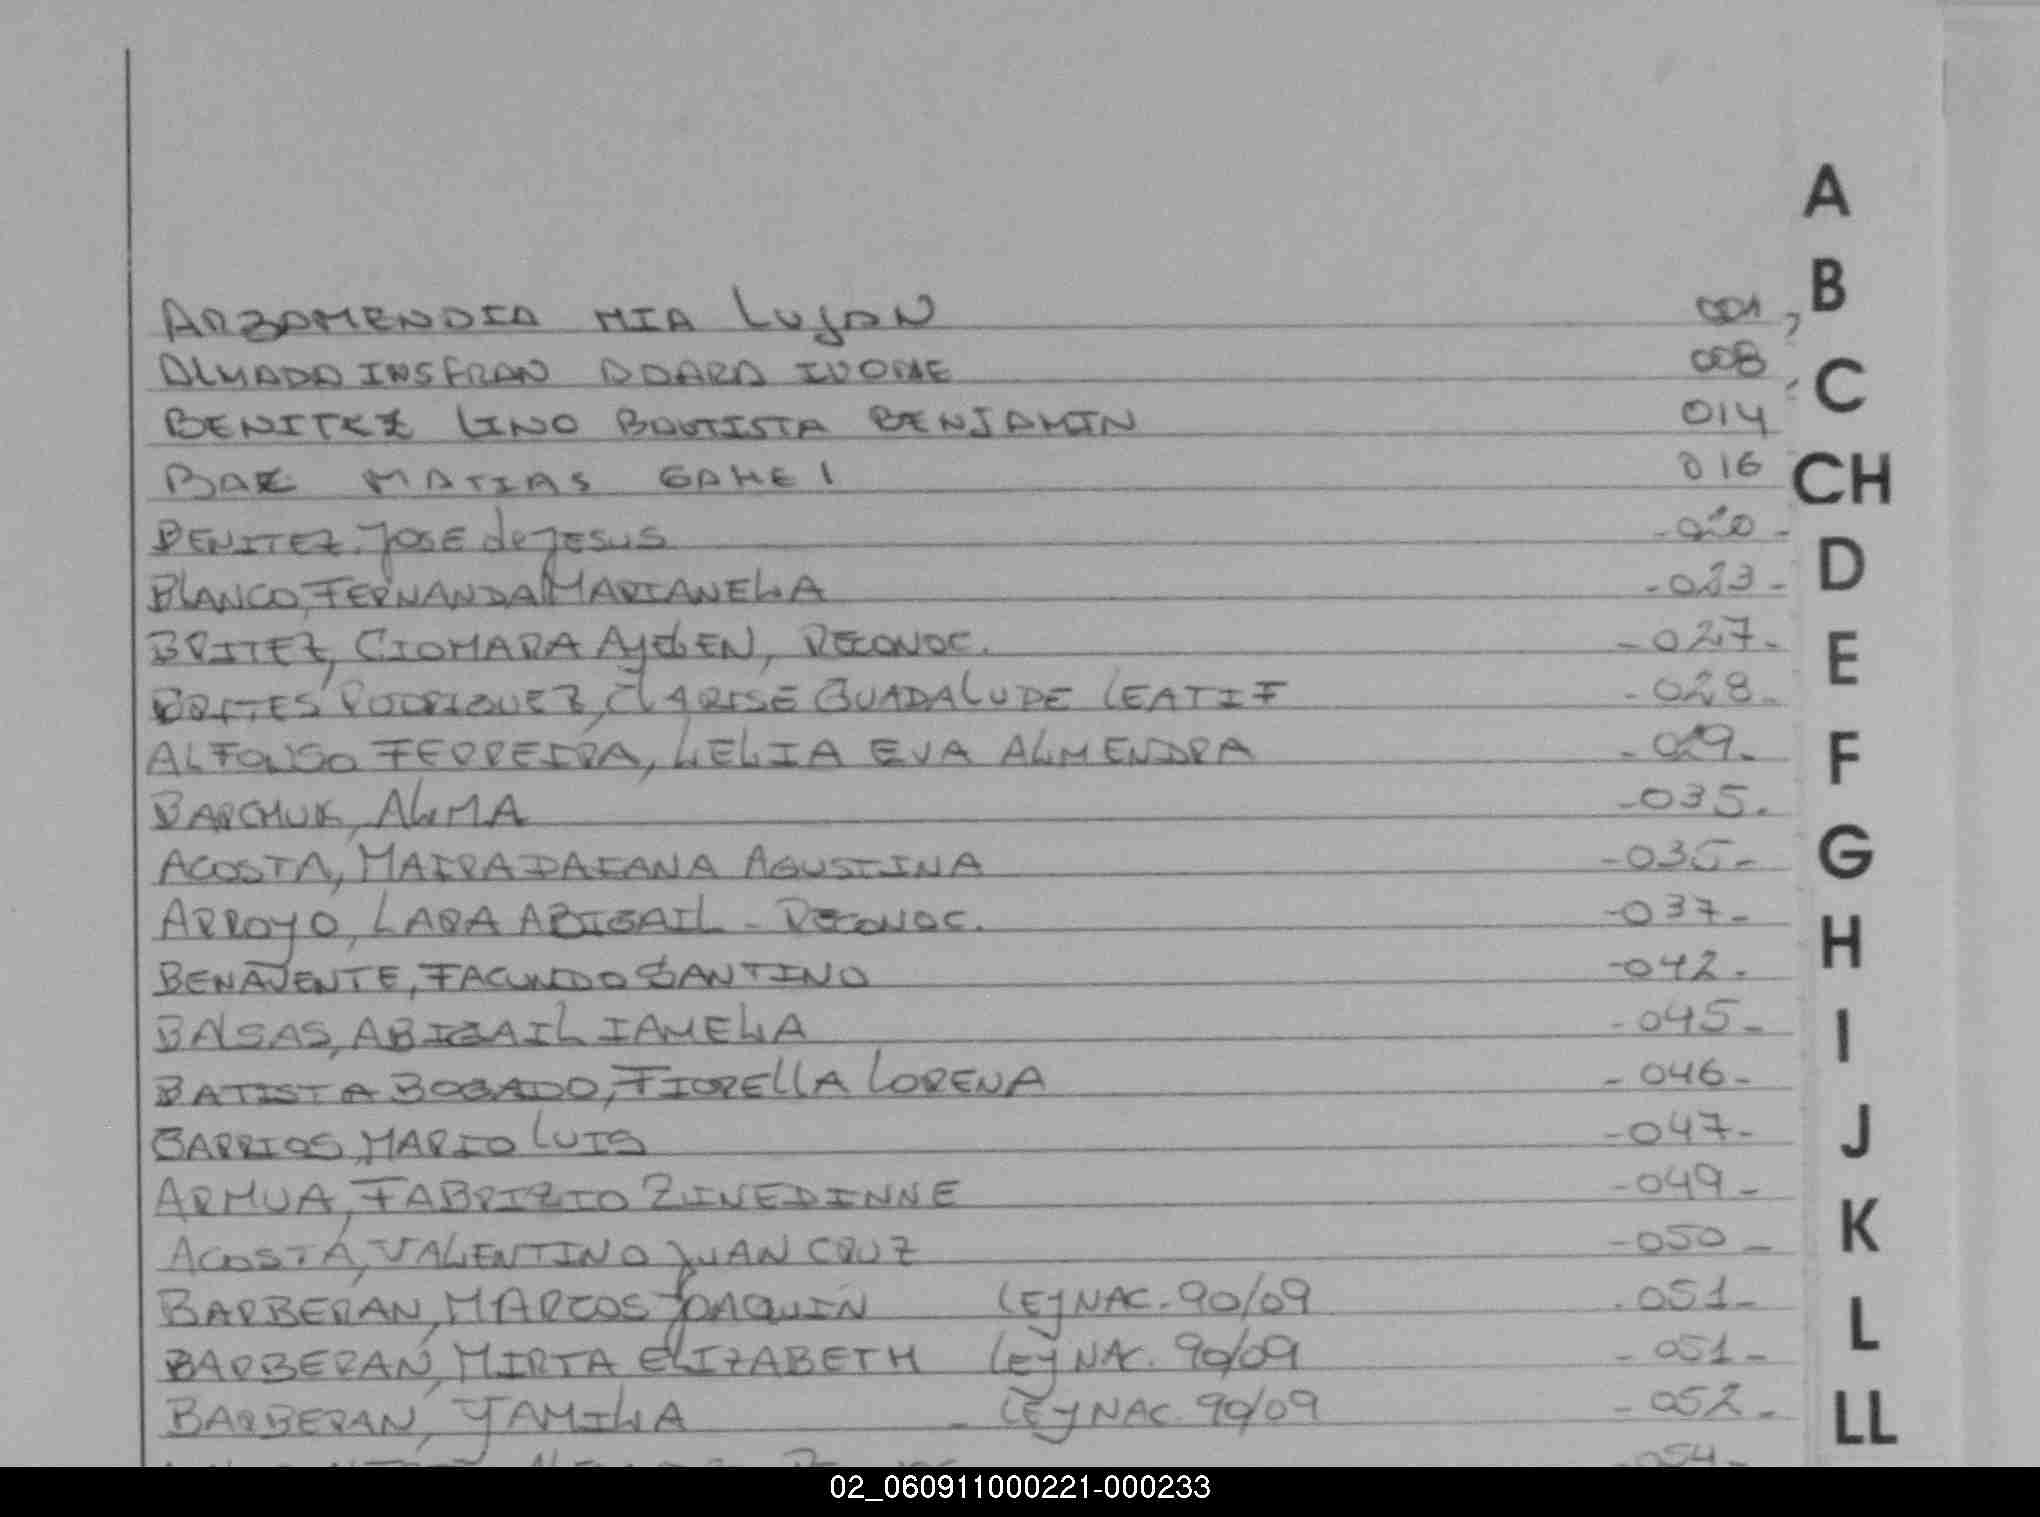 ARZAMENDIA MIA LUJAN 001
ALMADA INSFRAN AMARA IVONE 008
BENITEZ LINO BAUTISTA BENJAMIN 014
BAEZ MATIAS GAMEL 016
BENITEZ, JOSE de JESUS -020-
BLANCO, FERNANDA MARIANELA -023-
BRITEZ, CIOMARA AYELEN, RECONOC. -027-
BRITES RODRIGUEZ, CLARISE GUADALUPE LEATIF -028-
ALFONSO FERREIRA, LELIA EVA ALMENDRA -029-
BARCHUK, ALMA -035.
ACOSTA, MAIRA DAIANA AGUSTINA -035-
ARROYO, LARA ABIGAIL - RECONOC. -037-
BENAVENTE, FACUNDO SANTINO -042.
BALSAS, ABIGAIL IAMELA -045-
BATISTA BOGADO, FIORELLA LORENA -046-
BARRIOS, MARIO LUIS -047-
ARMUA, FABRIZIO ZINEDINNE -049-
ACOSTA, VALENTINO JUAN CRUZ -050-
BARBERAN, MARCOS JOAQUIN LEY NAC. 90/09 .051-
BARBERAN, MIRTA ELIZABETH LEY NAC. 90/09 -051-
BARBERAN, YAMILA - LEY NAC. 90/09 -052-
-054-
A
B
C
CH
D
E
F
G
H
I
J
K
L
LL
02_060911000221-000233